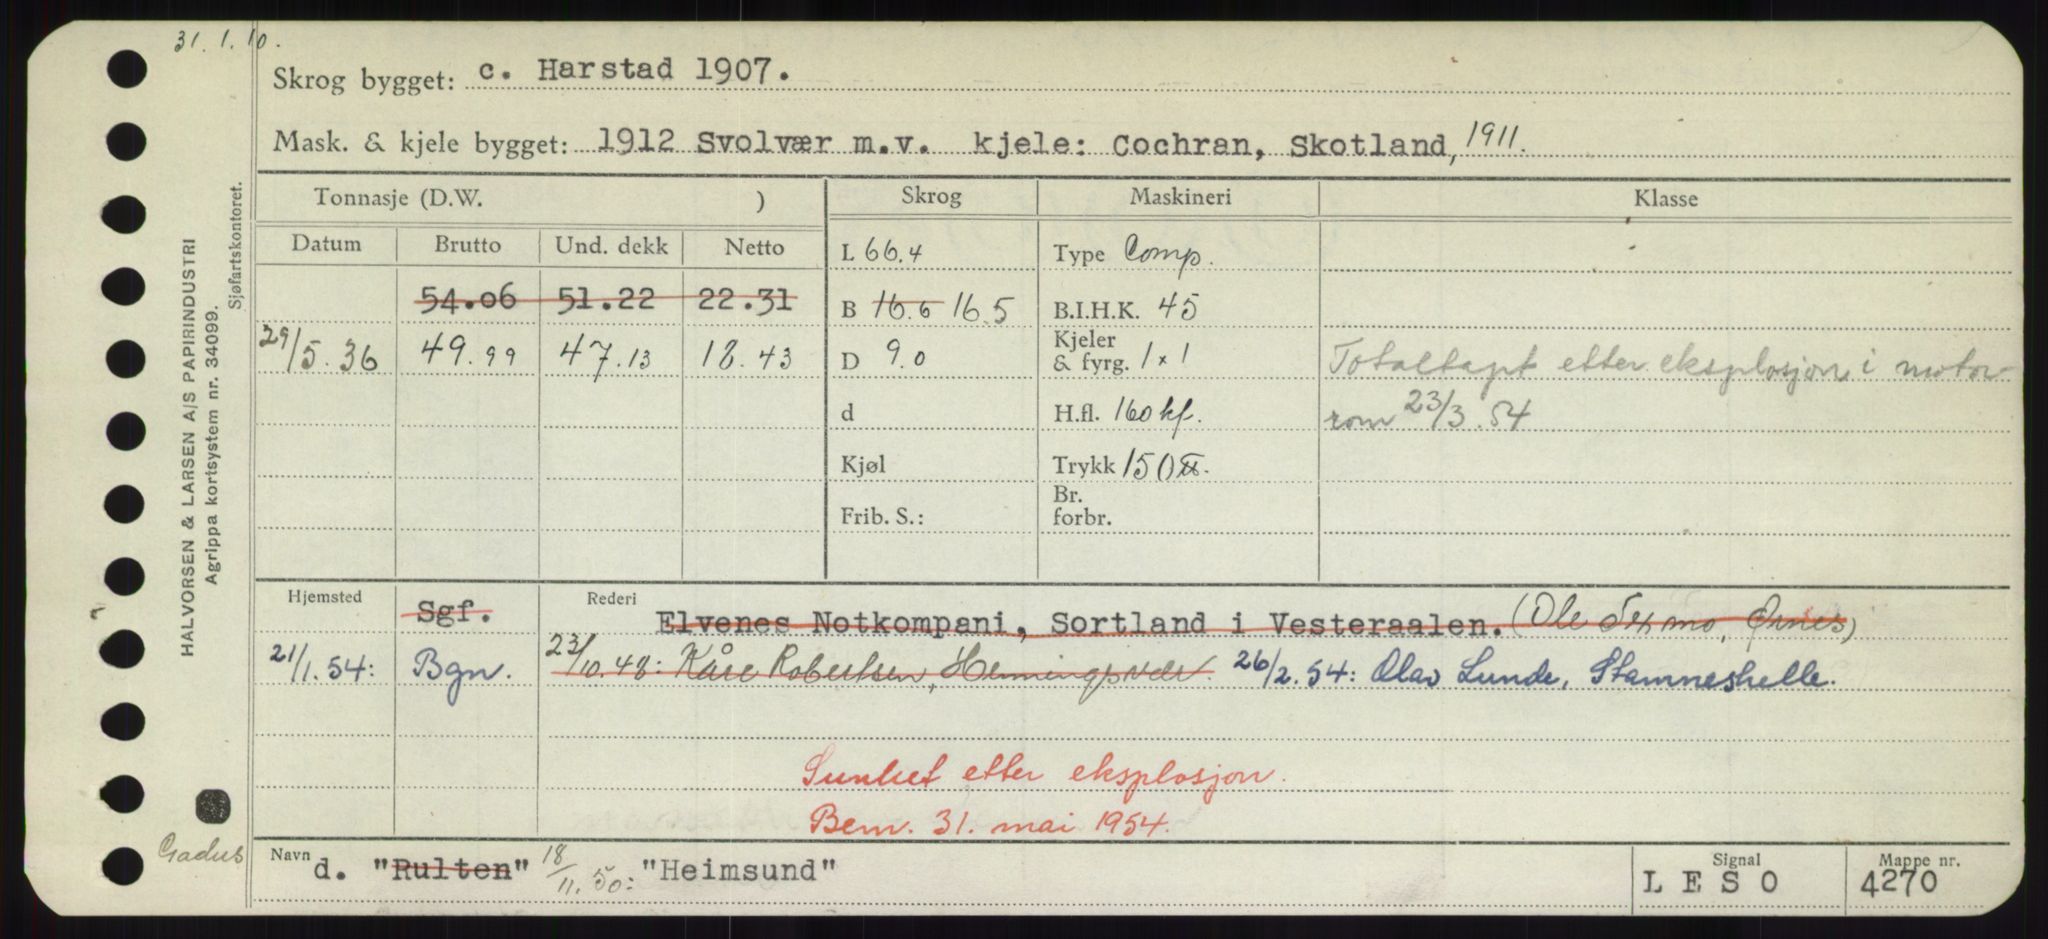 31.1.10.
Skrog bygget: c. Harstad 1907.
Mask. & kjele bygget: 1912 Svolvær m.v. kjele: Cochran, Skotland, 1911.
Tonnasje (D.W. ) Skrog Maskineri Klasse
Datum Brutto Und. dekk Netto
54.06 51.22 22.31
29/5.36 49.99 47.13 18.43
L 66.4
B 16.6 16.5
D 9.0
d
Kjøl
Frib. S.:
Type Comp.
B.I.H.K. 45
Kjeler
& fyrg. 1 x 1
H.fl. 160 kf.
Trykk 150
Br.
forbr.
Totaltapt etter eksplosjon i motor-
rom 23/3.54
Hjemsted Sgf. Rederi Elvenes Notkompani, Sortland i Vesteraalen. (Ole Ørnes)
21/1.54: Bgn. 23/10.48: Kåre Robertsen, Henningsvær. 26/2.54: Olav Lunde, Stamneshelle.
Sunket etter eksplosjon.
Bem. 31. mai 1954.
Gadus
Navn d. "Rulten" 18/11.50: "Heimsund"
Signal LESO
Mappe nr. 4270
HALVORSEN & LARSEN A/S PAPIRINDUSTRI
Agrippa kortsystem nr. 34099.
Sjøfartskontoret.